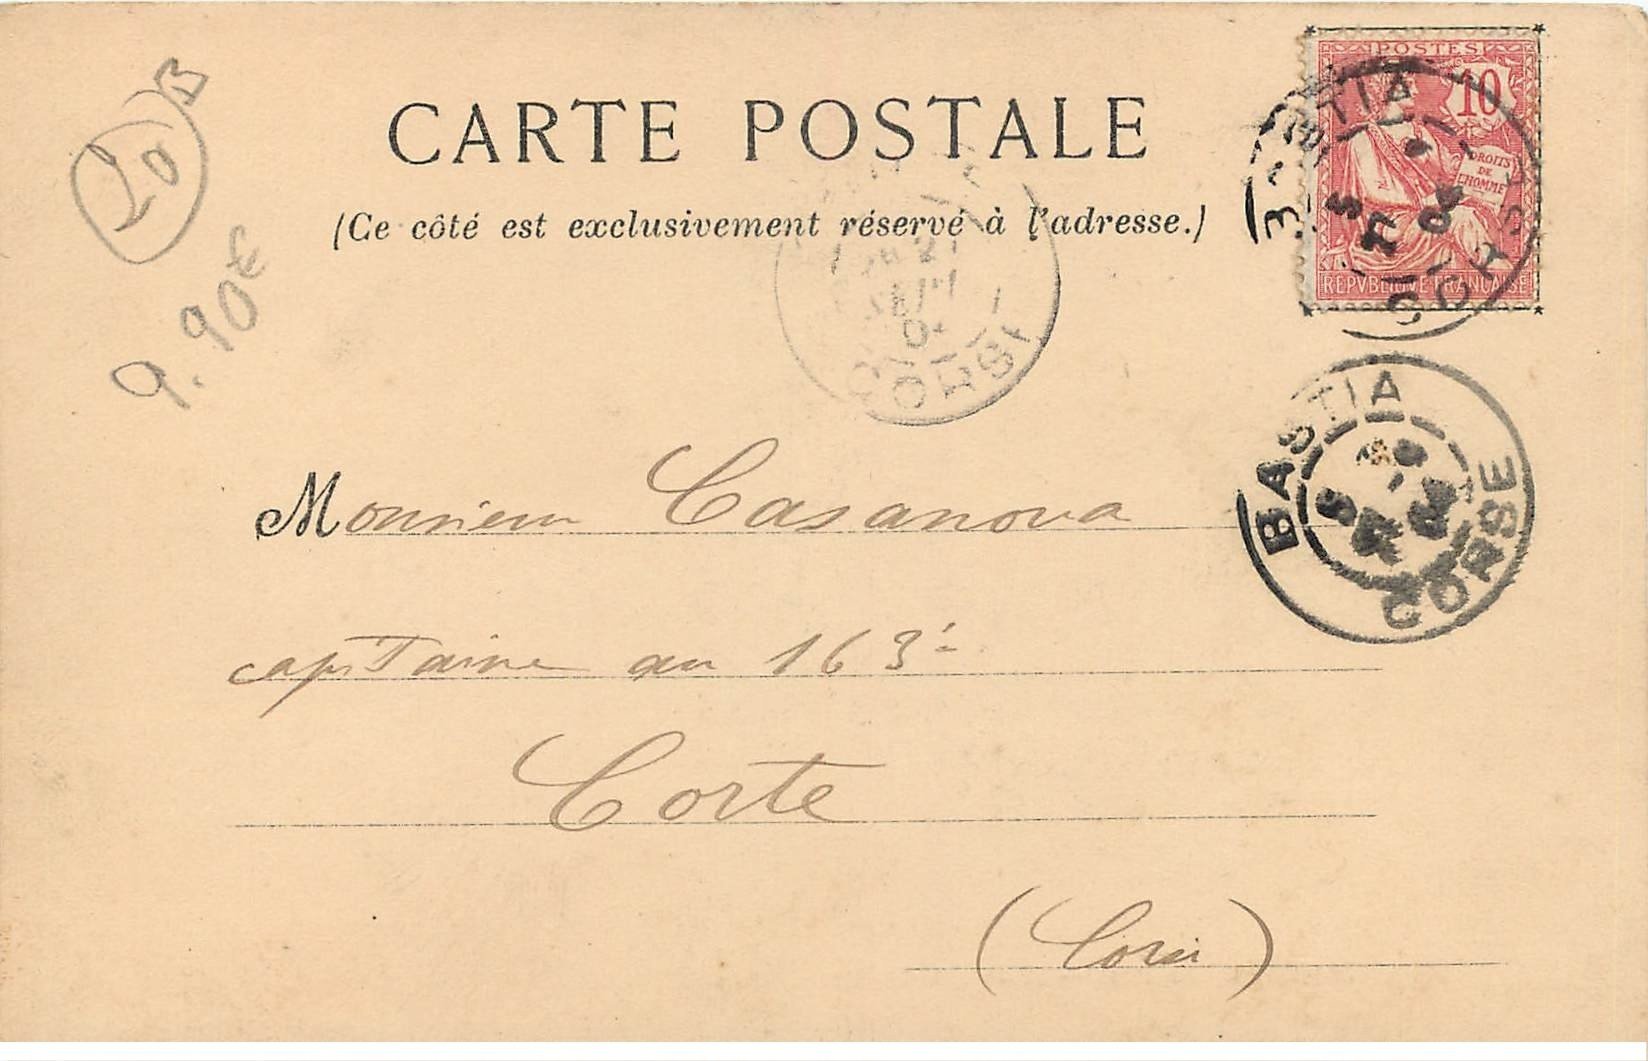 20 B
9.90€
CARTE POSTALE
(Ce côté est exclusivement réservé à l'adresse.)
POSTES
10
DROITS
DE
L'HOMME
REPVBLIQUE FRANÇAISE
BASTIA
CORSE
CORSE
BASTIA
CORSE
Monsieur Casanova
capitaine au 163e
Corte
(Corse)